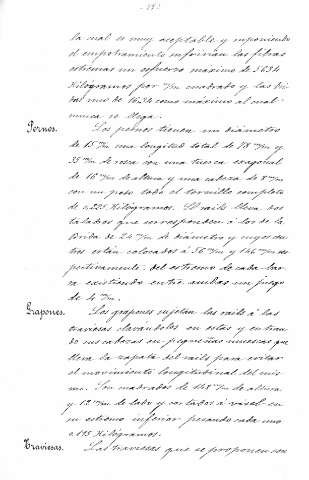 la cual es muy aceptable y suponiendo
el empotramiento sufririan las fibras
extremas un esfuerzo máximo de 5634
Kilógramos por m/m cuadrado y las bri-
das uno de 16,34 como máximo al cual
nunca se llega.
Pernos. Los pernos tienen un diámetro
de 15 m/m una longitud total de 78 m/m y
35 m/m de rosca con una tuerca exagonal
de 16 m/m de altura y una cabeza de 8 m/m
con un peso todo el tornillo completo
de 0,225 Kilógramos. El rails lleva dos
taladros que corresponden á los de la
brida de 24 m/m de diámetro y cuyos cen-
tros están colocados á 56 m/m y 146 m/m res-
pectivamente, del extremo de cada bar-
ra existiendo entre ambas un juego
de 4 m/m.
Grapones. Los grapones sujetan los rails á las
traviesas clavandolos en estas y entran-
do sus cabezas en pequeñas muescas que
lleva la zapata del rails para evitar
el movimiento longitudinal del mis-
mo. Son cuadrados de 148 m/m de altura
y 12 m/m de lado y cortados á visel en
su extremo inferior pesando cada uno
0,195 Kilógramos.
Traviesas. Las traviesas que se proponen son